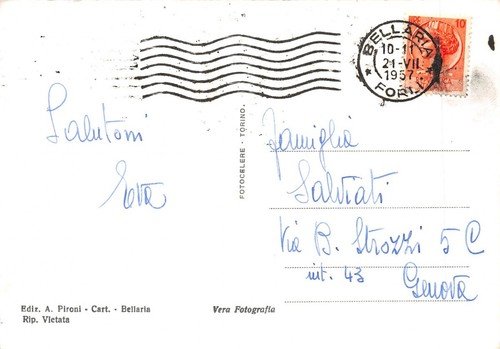 BELLARIA
10-11
21-VII
1957
* FORLI *
10
Salutoni
Eva
Famiglia
Salviati
Via B. Strozzi 5 C
int. 43
Genova
FOTOCELERE - TORINO.
Ediz. A. Pironi - Cart. - Bellaria
Rip. Vietata
Vera Fotografia